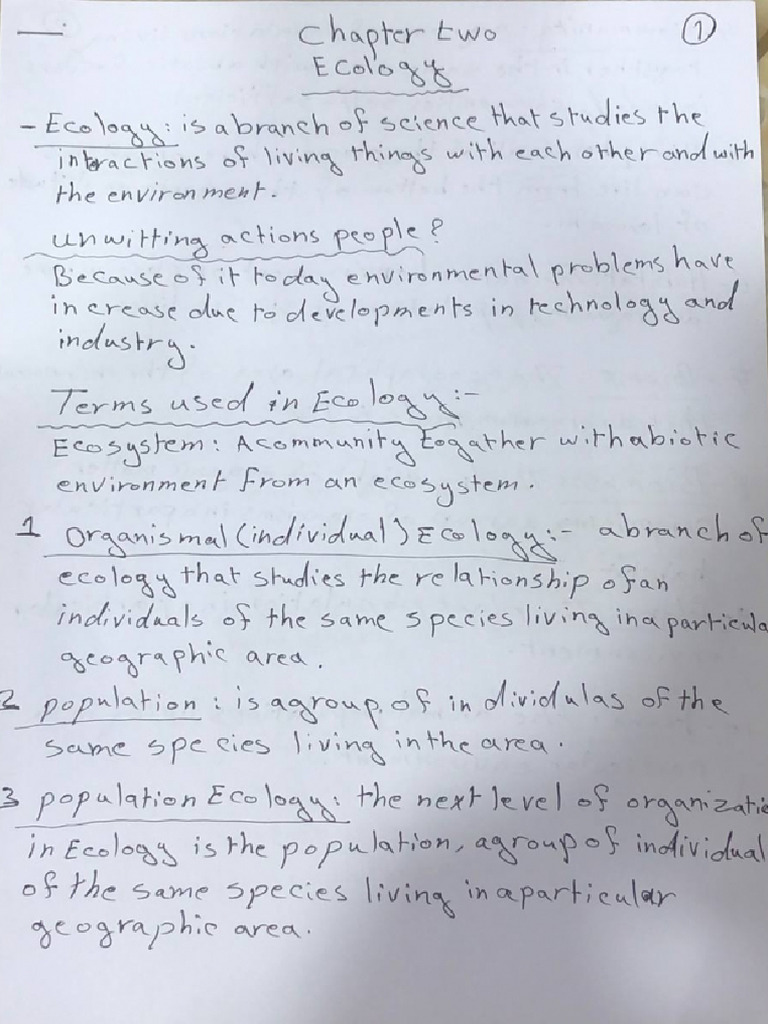 Chapter two ①
Ecology
- Ecology: is a branch of science that studies the
intractions of living things with each other and with
the environment.
unwitting actions people?
Because of it today environmental problems have
increase due to developments in technology and
industry.
Terms used in Ecology:-
Ecosystem: A community togather with abiotic
environment from an ecosystem.
1 Organismal (individual) Ecology:- a branch of
ecology that studies the relationship of an
individuals of the same species living in a particula
geographic area.
2 population: is a group of individulas of the
same species living in the area.
3 population Ecology: the next level of organizatio
in Ecology is the population, a group of individual
of the same species living in a particular
geographic area.